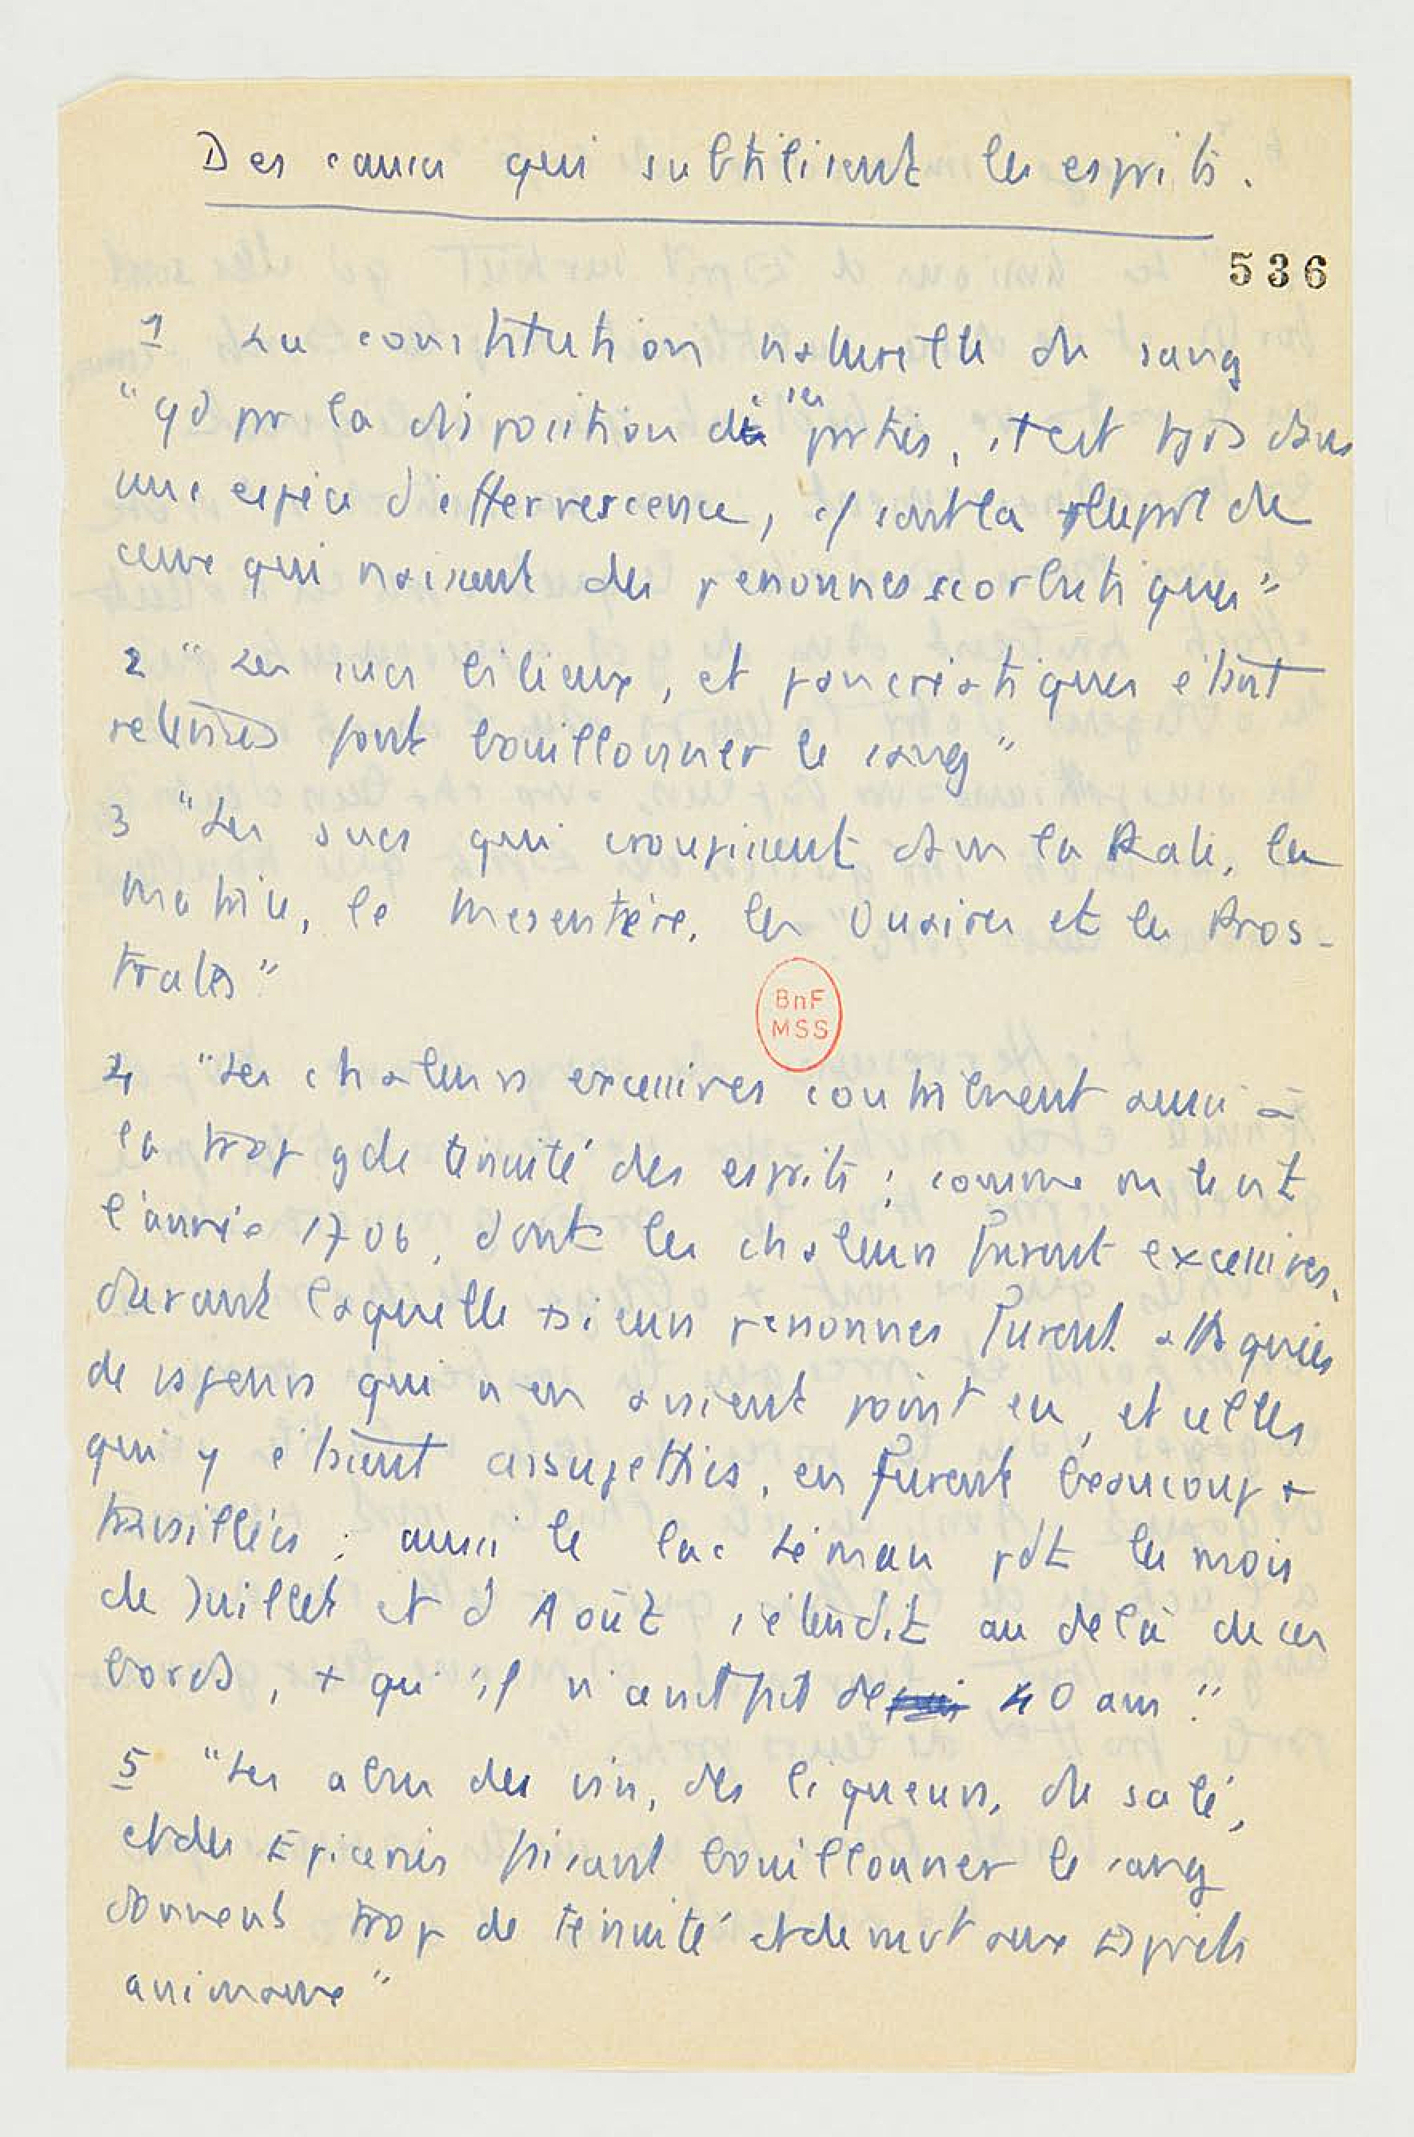 Des causes qui subtilisent les esprits.
536
1 La constitution naturelle du sang
"qd pr la disposition de ses parties, il est tjs dans
une espèce d'effervescence, tel est la plupart de
ceux qui naissent des personnes scorbutiques"
2 "Les sucs bilieux, et pancréatiques étant
retenus font bouillonner le sang"
3 "Les sucs qui croupissent dans la Rate, la
matrice, le mesentère, les Ovaires et les Pros-
trates"
4 "Les chaleurs excessives contribuent aussi à
la trop gde ténuité des esprits ; comme on le vit
l'année 1706, dont les chaleurs furent excessives,
durant laquelle +sieurs personnes furent attaquées
de vapeurs qui n'en avaient point eu, et celles
qui y étaient assujetties, en furent beaucoup +
travaillées ; aussi le lac Léman pdt les mois
de Juillet et d'Août s'étendit au delà de ces
bords, + qu'il n'avait fait de 40 ans."
5 "Les abus des vins, des liqueurs, du salé,
et des Epiceries faisant bouillonner le sang
donnent trop de ténuité et de mvt aux Esprits
animaux"
BnF
MSS